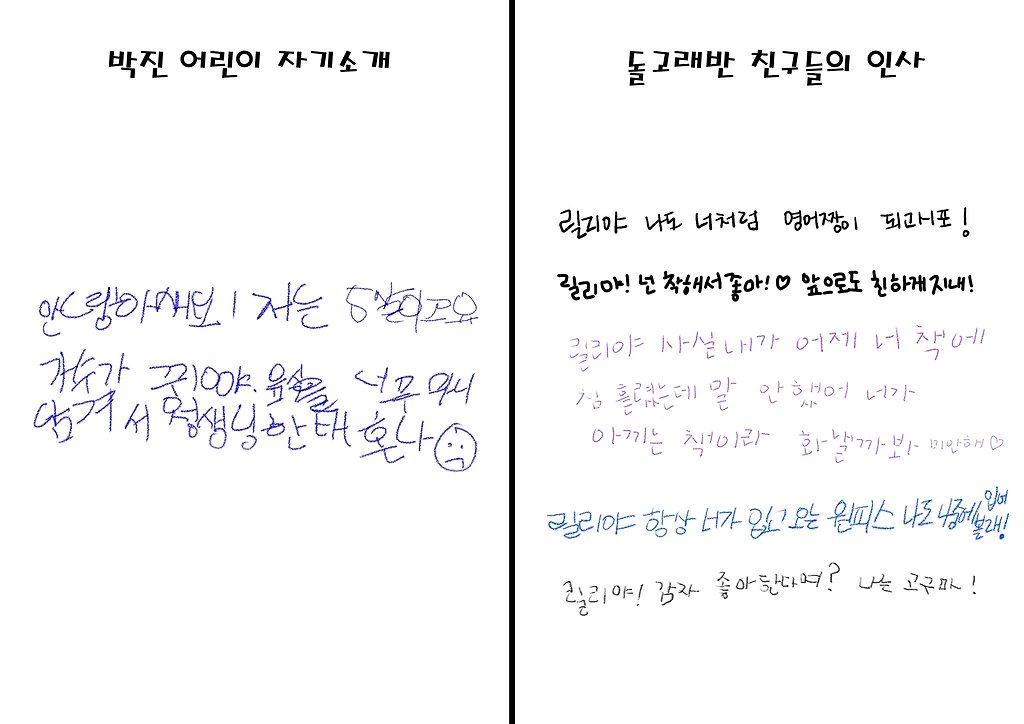 박진 어린이 자기소개
저는 5살이고요
가수가 꿈이야. 너무
서 혼나
돌고래반 친구들의 인사
릴리야 나도 너처럼 영어짱이 되고시포!
릴리야! 넌 착해서 좋아!♡ 앞으로도 친하게 지내!
릴리야 사실 내가 어제 너 책에
침 흘렸는데 말 안 했어 너가
아끼는 책이라 화날까봐 미안해♡
릴리야 항상 너가 입고 오는 원피스 나도 나중에 입어볼래!
릴리야! 감자 좋아한다며? 나는 고구마!